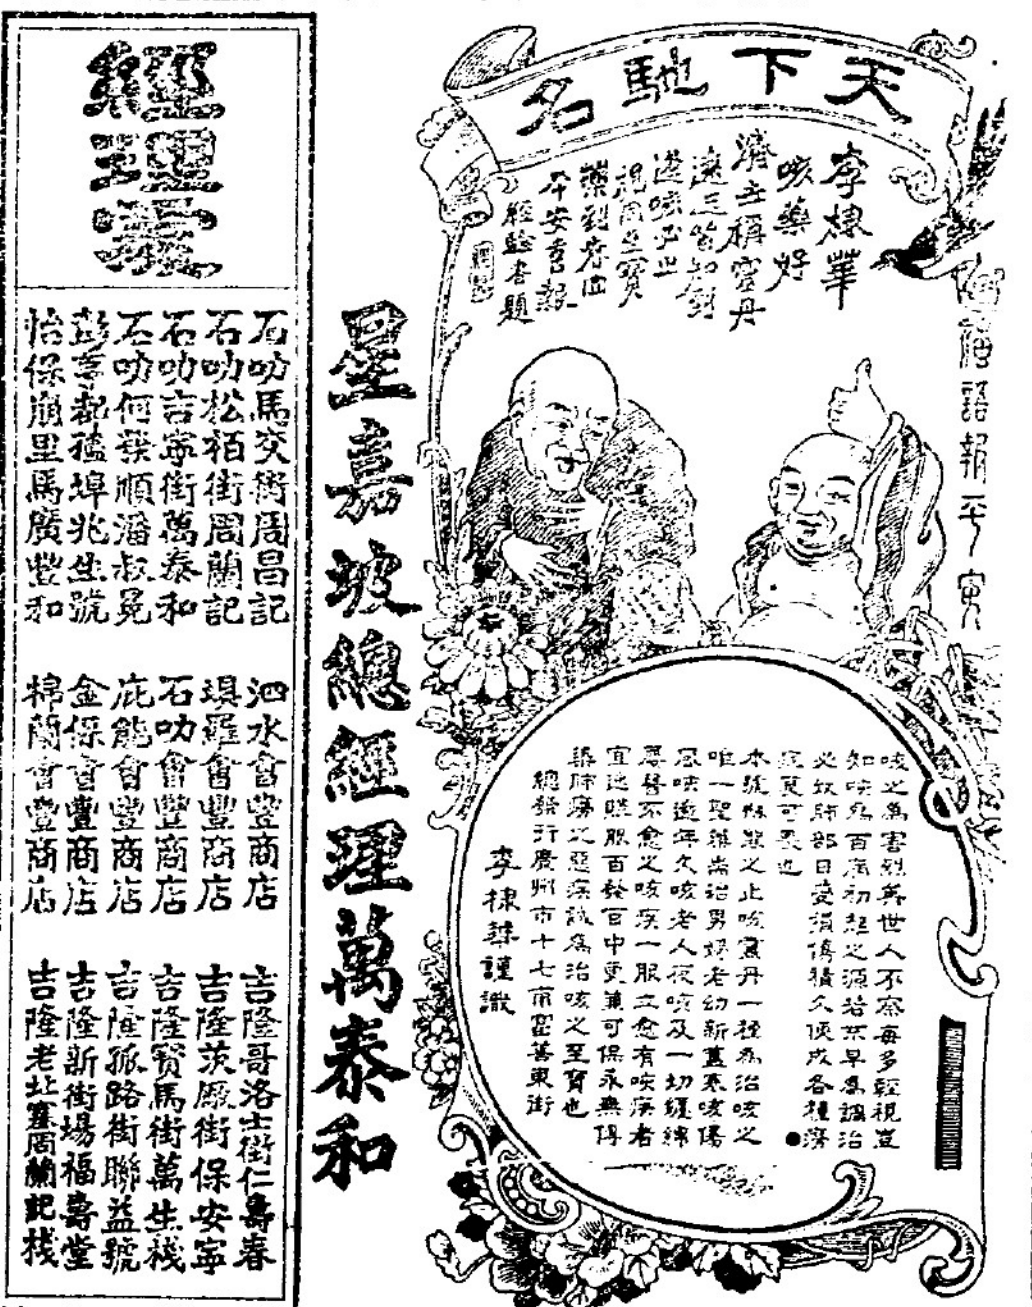 天下馳名
李棣華
咳藥好
濟世稱靈丹
遠近皆知到
燥咳必止
視同至寶
藥到春回
平安喜報
經驗者題
語報平安
咳之為害烈矣世人不察每多輕視豈
知咳為百病初起之源若不早為調治
必致肺部日受損傷積久便成各種癆
症莫可畏也
本號秘製之止咳靈丹一種為治咳之
唯一聖藥耑治男婦老幼新舊寒咳傷
風咳遠年久咳老人夜咳及一切纏綿
屢醫不愈之咳疾一服立愈有咳疾者
宜速購服百發百中更兼可保永無得
染肺癆之惡疾誠為治咳之至寶也
總發行廣州市十七甫富善東街
李棣華謹識
星嘉坡總經理萬泰和
經理處
石叻馬交街周昌記
石叻松栢街周蘭記
石叻吉寧街萬泰和
石叻何葵順潘叔冕
彭亨都𧶽埠兆生號
怡保崩里馬廣豐和
泗水會豐商店
埧羅會豐商店
石叻會豐商店
庇能會豐商店
金保會豐商店
棉蘭會豐商店
吉隆哥洛士街仁壽春
吉隆茨厰街保安寧
吉隆賢馬街萬生棧
吉隆孤路街聯益號
吉隆新街場福壽堂
吉隆老北塞周蘭記棧